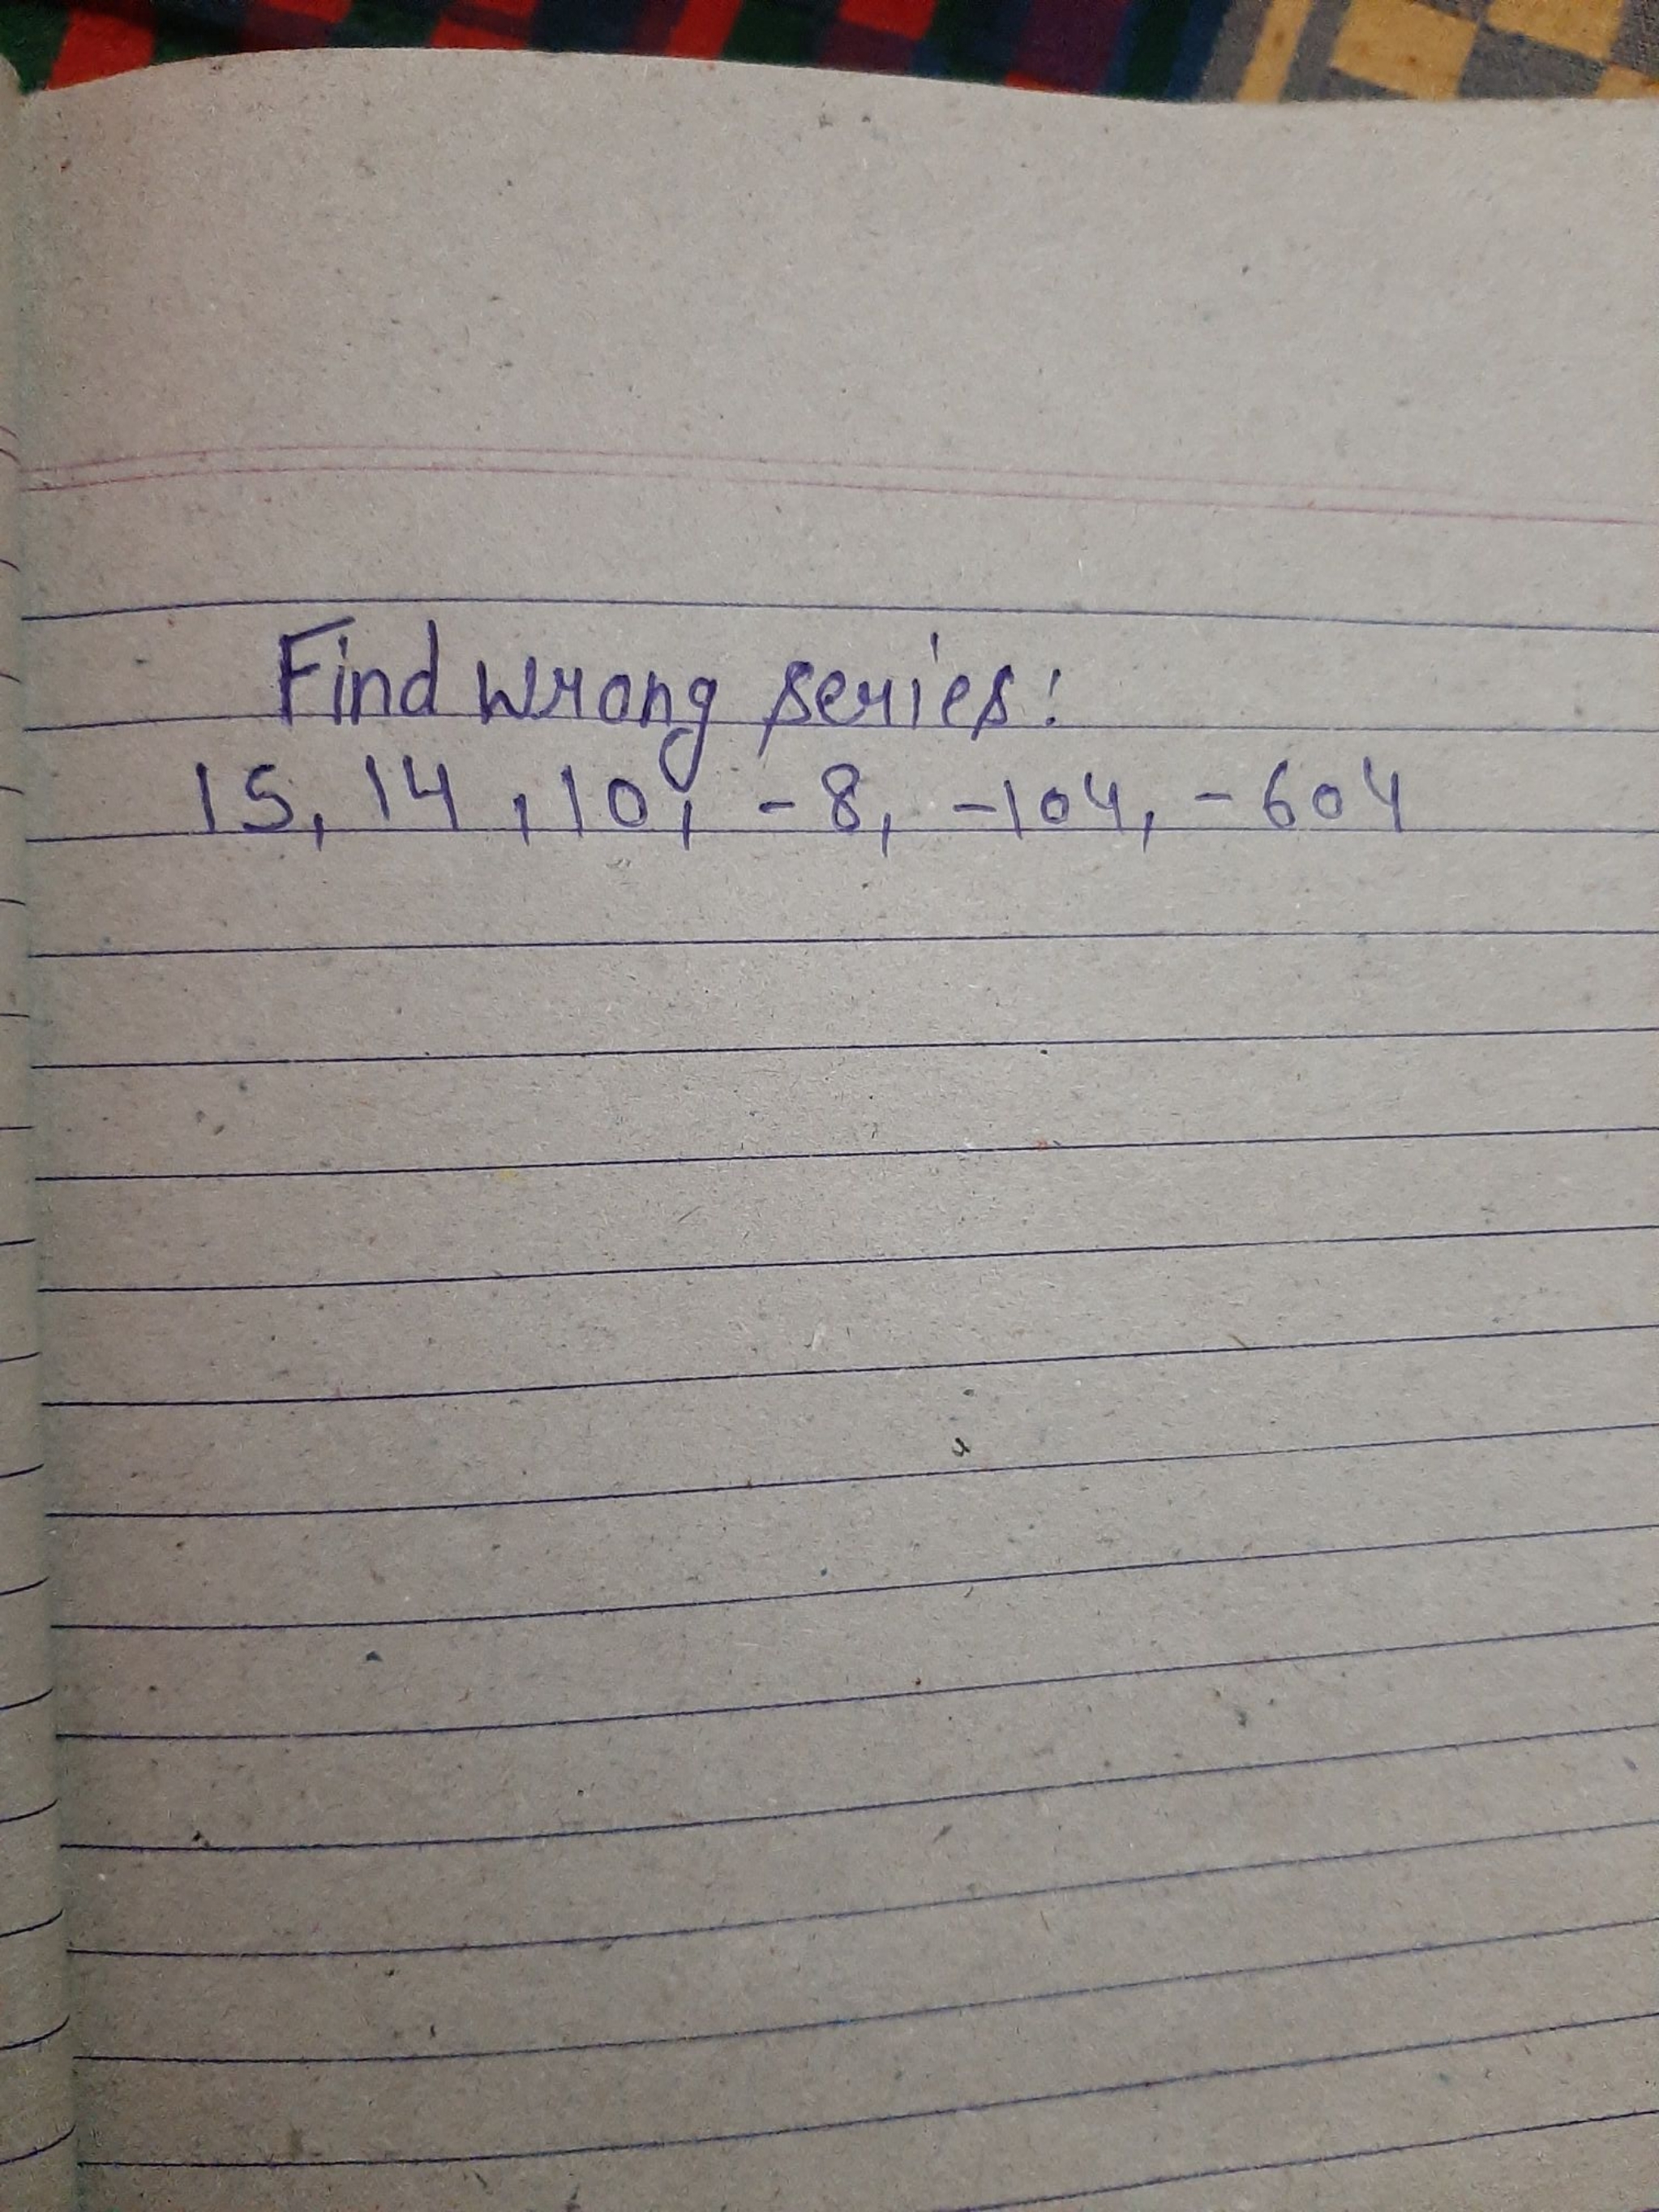 Find wrong series:
15, 14, 10, -8, -104, -604